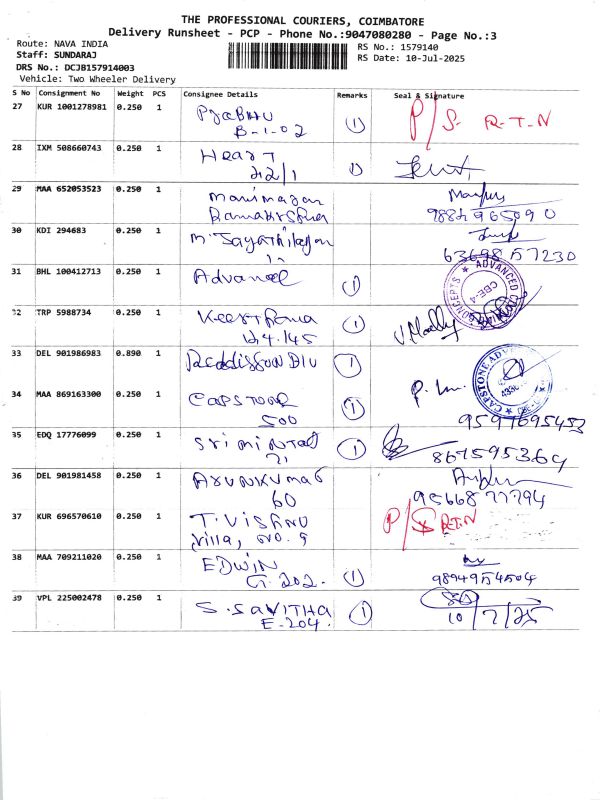 THE PROFESSIONAL COURIERS, COIMBATORE
Delivery Runsheet - PCP - Phone No.:9047080280 - Page No.:3
Route: NAVA INDIA
RS No.: 1579140
Staff: SUNDARAJ
RS Date: 10-Jul-2025
DRS No.: DCJB157914003
Vehicle: Two Wheeler Delivery
S No Consignment No Weight PCS Consignee Details Remarks Seal & Signature
27 KUR 1001278981 0.250 1 Prabhu 1 P/S R-T-N
B-1-02
28 IXM 508660743 0.250 1 Heart 1
22/1
29 MAA 652053523 0.250 1 Manimaran
30 KDI 294683 0.250 1
6369857230
31 BHL 100412713 0.250 1 Advanced 1 ADVANCED CONCEPTS CBE-4
32 TRP 5988734 0.250 1 Keerthana 1
124.145
33 DEL 901986983 0.890 1 1
34 MAA 869163300 0.250 1 CAPSTONE 1 CAPSTONE
500 9597695453
35 EDQ 17776099 0.250 1 1 867595364
71
36 DEL 901981458 0.250 1 Arunkumar
60 9566877794
37 KUR 696570610 0.250 1 T. VISHNU P/S RTN
Villa, No. 9
38 MAA 709211020 0.250 1 EDWIN 1
G. 202. 9894954504
39 VPL 225002478 0.250 1 S. SAVITHA 1
E-204. 10/7/25